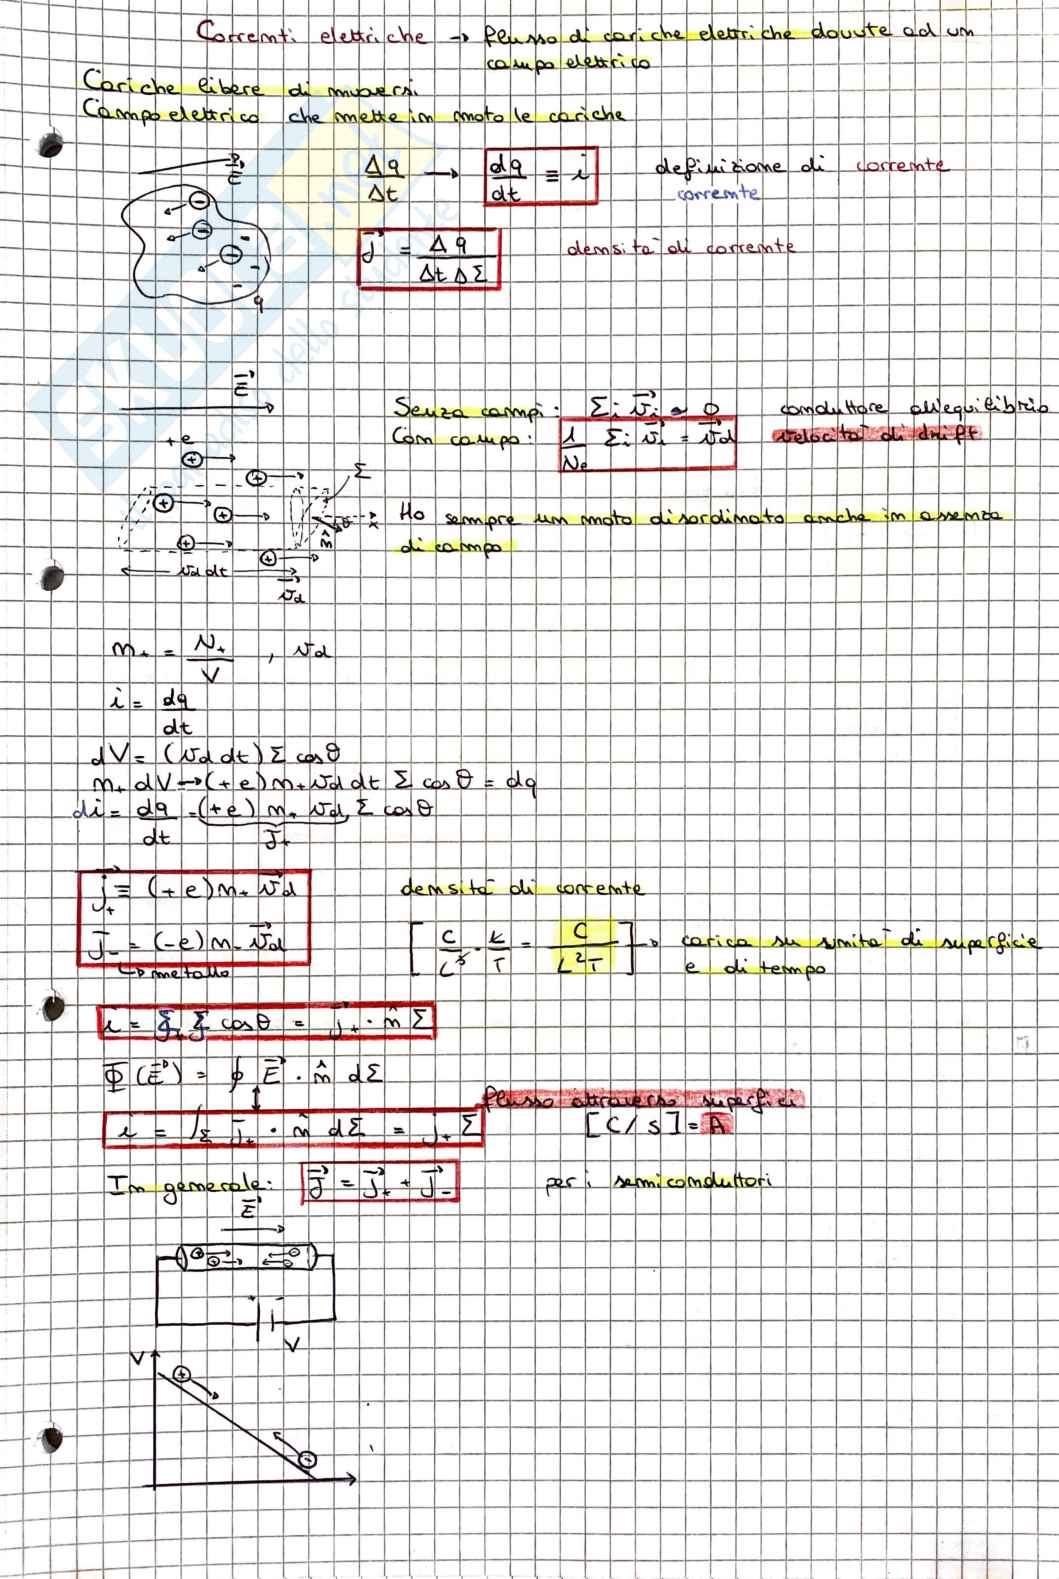 Correnti elettriche → flusso di cariche elettriche dovute ad un
campo elettrico
Cariche libere di muoversi
Campo elettrico che mette in moto le cariche
E
Δq/Δt → dq/dt ≡ i definizione di corrente
corrente
J = Δq/(Δt ΔΣ) densità di corrente
q
E
Senza campi: Σi vi ~ 0 conduttore all'equilibrio
Con campo: 1/Ne Σi vi = vd velocità di drift
+e
Σ
Ho sempre un moto disordinato anche in assenza
di campo
θ x
n̂
vd dt
vd
n+ = N+/V , vd
i = dq/dt
dV = (vd dt) Σ cosθ
n+ dV → (+e) n+ vd dt Σ cosθ = dq
di = dq/dt = (+e) n+ vd Σ cosθ
J+
j+ ≡ (+e) n+ vd densità di corrente
J- = (-e) n- vd
[C/L³ · L/T = C/L²T] → carica su unità di superficie
e di tempo
↳ metallo
i = J+ Σ cosθ = j+ · n̂ Σ
Φ(E) = ∮ E · n̂ dΣ
↕
flusso attraverso superfici
i = ∫Σ J+ · n̂ dΣ = j+ Σ [C/s] = A
In generale: J = J+ + J- per i semiconduttori
E
V
V